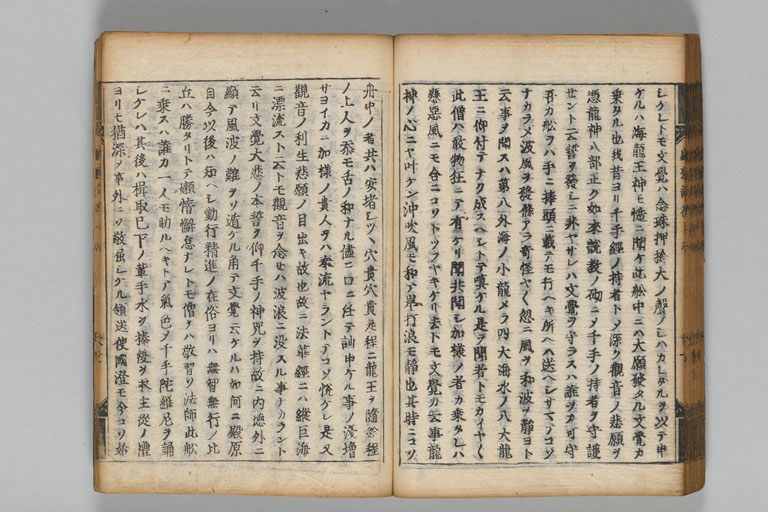 シケレトモ文覺ハ念珠押捻大ノ聲ノシハカレタルヲ以テ申
ケルハ海龍王神モ慥ニ聞ケ此舩中ニハ大願發タル文覺カ
乗タル也我昔ヨリ千手經ノ持者トシテ深ク觀音ノ悲願ヲ
憑龍神八部正ク如來說教ノ砌ニシテ千手ノ持者ヲ守護
セント云誓ヲ發シニ非ヤサレハ文覺ヲ守ラスハ誰ヲカ可守
吾カ舩ヲハ手ニ捧頭ニ載テモ行ヘキ所ヘハ送ヘシサマテコソ
ナカラメ波風ヲ發條アラ奇怪ヤ々忽ニ風ヲ和波ヲ靜ヨト
云事ヲ聞スハ第八外海ノ小龍メラ四大海水ノ八大龍
王ニ仰付テナク成スヘシトテ嗔ケル是ヲ聞者トモカイヤ々
此僧ハ敢物狂ニテ有ケリ聞共聞シ加樣ノ者カ乗タレハ
懸惡風ニモ合ニコソトツフヤキケリ去トモ文覺カ云事龍
神ノ心ニヤ叶ケン沖吹風モ和テ岸打浪モ靜也其時ニコソ
舟中ノ者共ハ安堵シツヽ穴貴穴貴是程ニ龍王ヲ隨ル程
ノ上人ヲ忝モ舌ノ和ナル儘ニ口ニ任テ訕申ケル事ノ淺增
サヨイカニ加樣ノ貴人ヲハ奉流ヤラントテコソ悅ケレ是又
觀音ノ利生悲願ノ目出キ故也故ニ法華經ニハ縱巨海
ニ漂流スト云トモ觀音ヲ念セハ波浪ニ沒スル事ナカラント
云リ文覺大悲ノ本誓ヲ仰千手ノ神咒ヲ持故ニ內德外ニ
顯テ風波ノ難ヲソ遁ケル角テ文覺云ケルハ如何ニ殿原
自今以後ハ知ヘシ勤行精進ノ在俗ヨリハ無智無行ノ比
丘ハ勝タリトテ懶惰懈怠ナレトモ僧ヲハ敬習ソ法師此舩
ニ乗スハ誰カ一人モ助ルヘキトテ氣色シテ千手陀羅尼ヲ誦
シケレハ其後ハ楫取已下ノ輩手水ヲ捧履ヲ取主從ノ禮
ヨリモ猶深ク事外ニソ敬屈シケル領送使國澄モ今コソ始